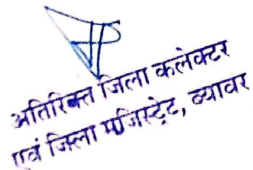 अतिरिक्त जिला कलेक्टर
एवं जिला मजिस्ट्रेट, ब्यावर